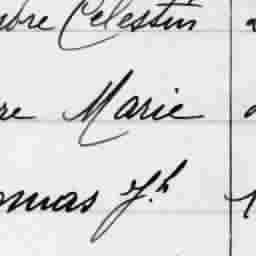 bre Celestin
re Marie
omas Jh